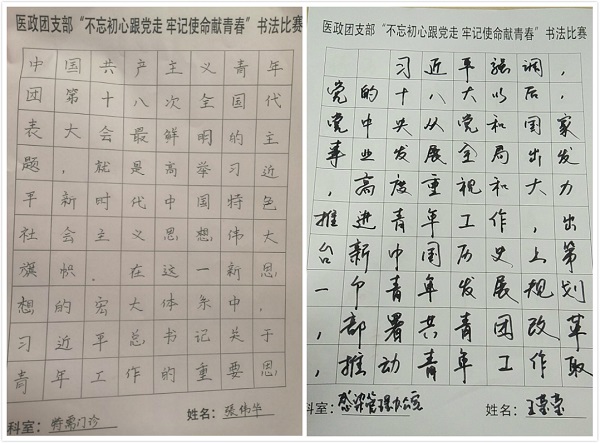 医政团支部“不忘初心跟党走 牢记使命献青春”书法比赛
中国共产主义青年
团第十八次全国代
表大会最鲜明的主
题，就是高举习近
平新时代中国特色
社会主义思想伟大
旗帜。在这一新思
想的宏大体系中，
习近平总书记关于
青年工作的重要思
科室：特需门诊 姓名：张伟华
医政团支部“不忘初心跟党走 牢记使命献青春”书法比赛
习近平强调，
党的十八大以后，
党中央从党和国家
事业发展全局出发
，高度重视和大力
推进青年工作，出
台新中国历史上第
一个青年发展规划
，部署共青团改革
，推动青年工作取
科室：感染管理办公室 姓名：王荣荣